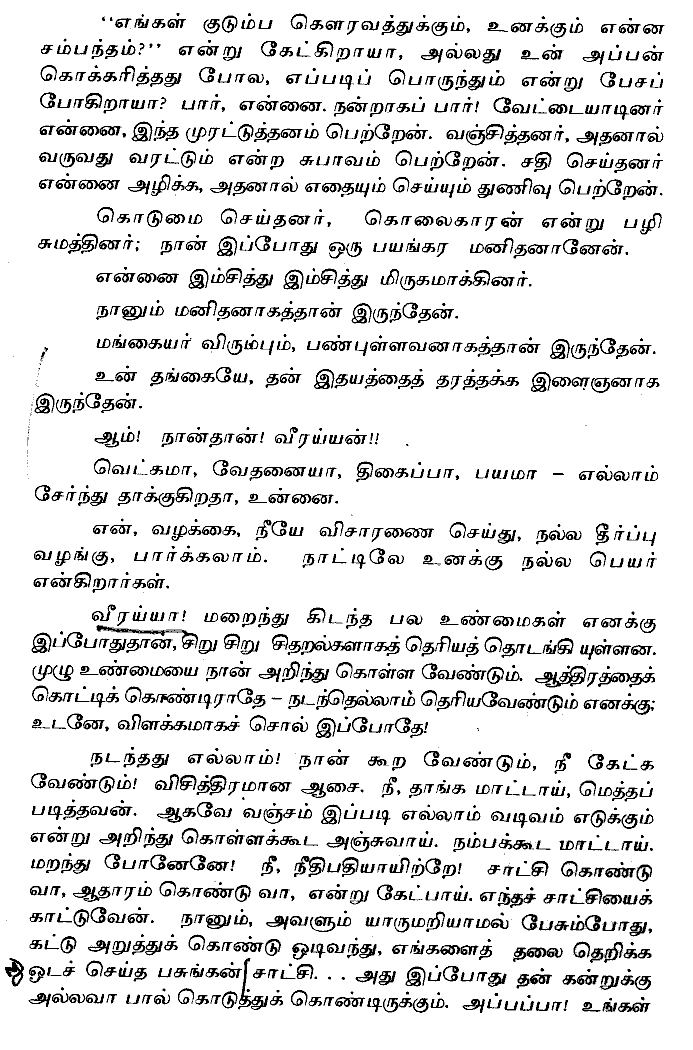 ‘‘எங்கள் குடும்ப கௌரவத்துக்கும், உனக்கும் என்ன
சம்பந்தம்?’’ என்று கேட்கிறாயா, அல்லது உன் அப்பன்
கொக்கரித்தது போல, எப்படிப் பொருந்தும் என்று பேசப்
போகிறாயா? பார், என்னை. நன்றாகப் பார்! வேட்டையாடினர்
என்னை, இந்த முரட்டுத்தனம் பெற்றேன். வஞ்சித்தனர், அதனால்
வருவது வரட்டும் என்ற சுபாவம் பெற்றேன். சதி செய்தனர்
என்னை அழிக்க, அதனால் எதையும் செய்யும் துணிவு பெற்றேன்.
கொடுமை செய்தனர், கொலைகாரன் என்று பழி
சுமத்தினர்; நான் இப்போது ஒரு பயங்கர மனிதனானேன்.
என்னை இம்சித்து இம்சித்து மிருகமாக்கினர்.
நானும் மனிதனாகத்தான் இருந்தேன்.
மங்கையர் விரும்பும், பண்புள்ளவனாகத்தான் இருந்தேன்.
உன் தங்கையே, தன் இதயத்தைத் தரத்தக்க இளைஞனாக
இருந்தேன்.
ஆம்! நான்தான்! வீரய்யன்!!
வெட்கமா, வேதனையா, திகைப்பா, பயமா – எல்லாம்
சேர்ந்து தாக்குகிறதா, உன்னை.
என், வழக்கை, நீயே விசாரணை செய்து, நல்ல தீர்ப்பு
வழங்கு, பார்க்கலாம். நாட்டிலே உனக்கு நல்ல பெயர்
என்கிறார்கள்.
வீரய்யா! மறைந்து கிடந்த பல உண்மைகள் எனக்கு
இப்போதுதான், சிறு சிறு சிதறல்களாகத் தெரியத் தொடங்கி யுள்ளன.
முழு உண்மையை நான் அறிந்து கொள்ள வேண்டும். ஆத்திரத்தைக்
கொட்டிக் கொண்டிராதே – நடந்தெல்லாம் தெரியவேண்டும் எனக்கு;
உடனே, விளக்கமாகச் சொல் இப்போதே!
நடந்தது எல்லாம்! நான் கூற வேண்டும், நீ கேட்க
வேண்டும்! விசித்திரமான ஆசை. நீ, தாங்க மாட்டாய், மெத்தப்
படித்தவன். ஆகவே வஞ்சம் இப்படி எல்லாம் வடிவம் எடுக்கும்
என்று அறிந்து கொள்ளக்கூட அஞ்சுவாய். நம்பக்கூட மாட்டாய்.
மறந்து போனேனே! நீ, நீதிபதியாயிற்றே! சாட்சி கொண்டு
வா, ஆதாரம் கொண்டு வா, என்று கேட்பாய். எந்தச் சாட்சியைக்
காட்டுவேன். நானும், அவளும் யாருமறியாமல் பேசும்போது,
கட்டு அறுத்துக் கொண்டு ஓடிவந்து, எங்களைத் தலை தெறிக்க
ஓடச் செய்த பசுங்கன் சாட்சி... அது இப்போது தன் கன்றுக்கு
அல்லவா பால் கொடுத்துக் கொண்டிருக்கும். அப்பப்பா! உங்கள்